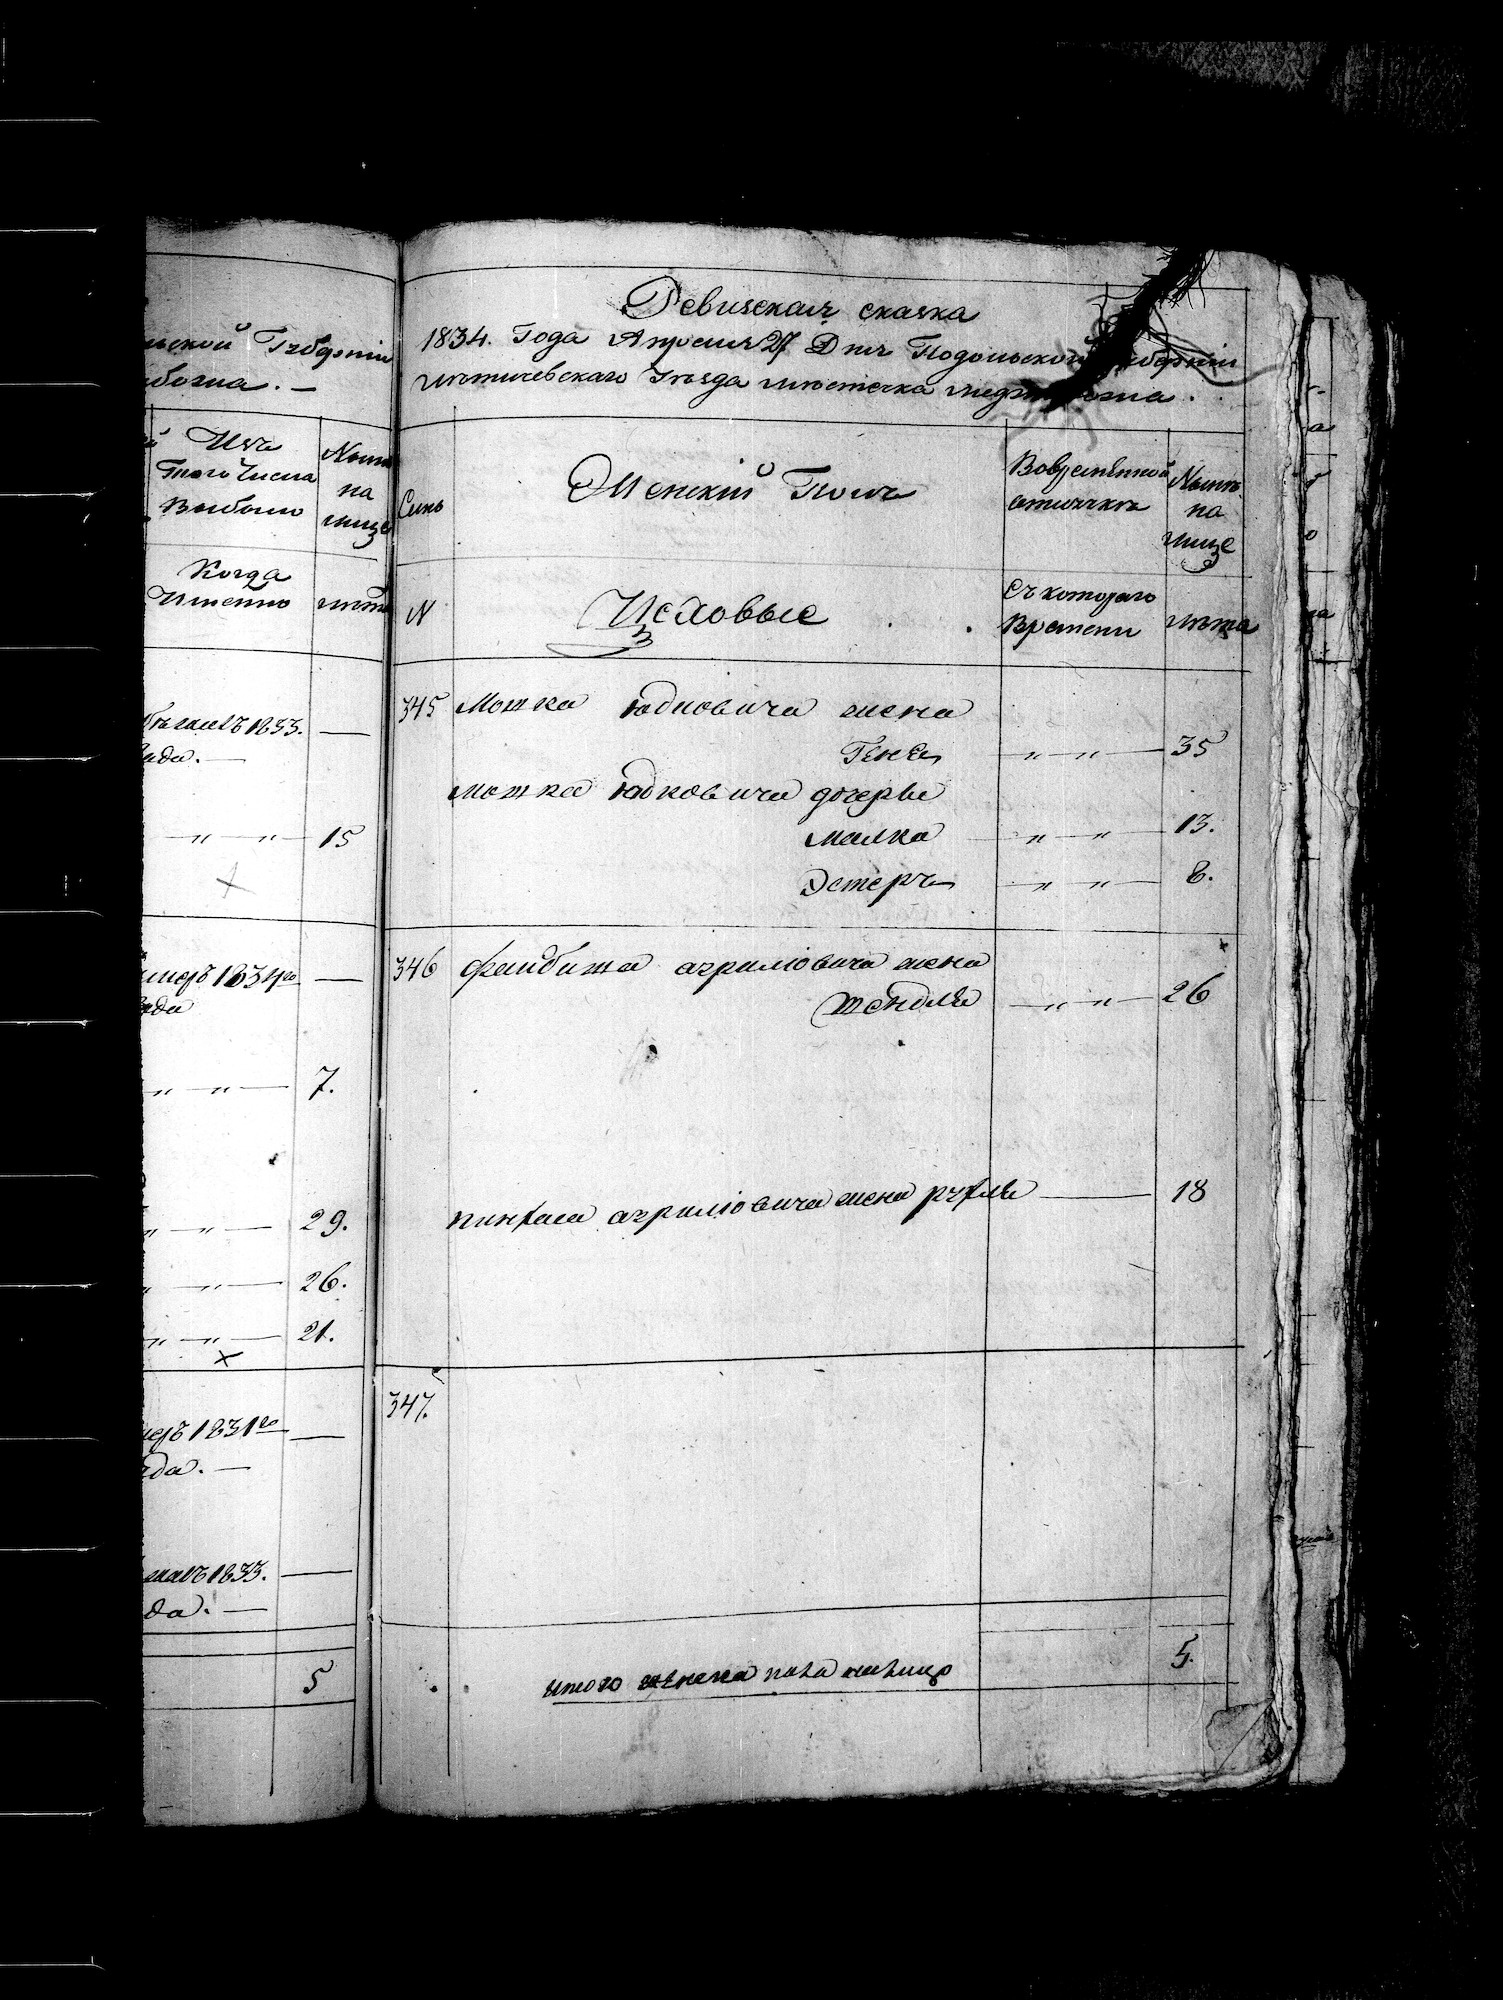 ьской Губерніи
божа. —
Изъ
Того Числа
Выбыло
Нынѣ
на
лице
Когда
Именно
лѣта
1833.
года. —
— „ — „ — 15
умеръ 1834го —
года
„ — „ — 7.
„ — „ — 29.
„ — „ — 26.
„ — „ — 21.
умеръ 1831го —
года. —
1833. —
да. —
5
Ревизская сказка
1834. Года Апреля 27 Дня Подольской Губерніи
Летичевскаго Уѣзда Мѣстечка Меджибожа.
Семьи
Женскій Полъ
Вовременной
отлучкѣ
Нынѣ
на
лице
N
Изховые
Съ котораго
Времени
лѣта
345 Мошка Юдковича жена
Геня — „ — „ — 35
Мошка Юдковича дочери
Малка — „ — „ — 13.
Эстеръ — „ — „ — 8.
346 Файбиша Сруліовича жена
Шендля — „ — „ — 26
Пинхаса Сруліовича жена Рухля — 18
347.
итого женска пола налицо 5.